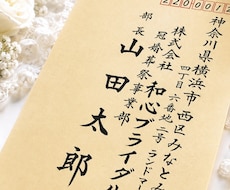 2200012
神奈川県横浜市西区みなとみ
四丁目六番地二号 ランドマー
株式会社 和心ブライダル
冠婚葬祭事業部
部長 山田太郎